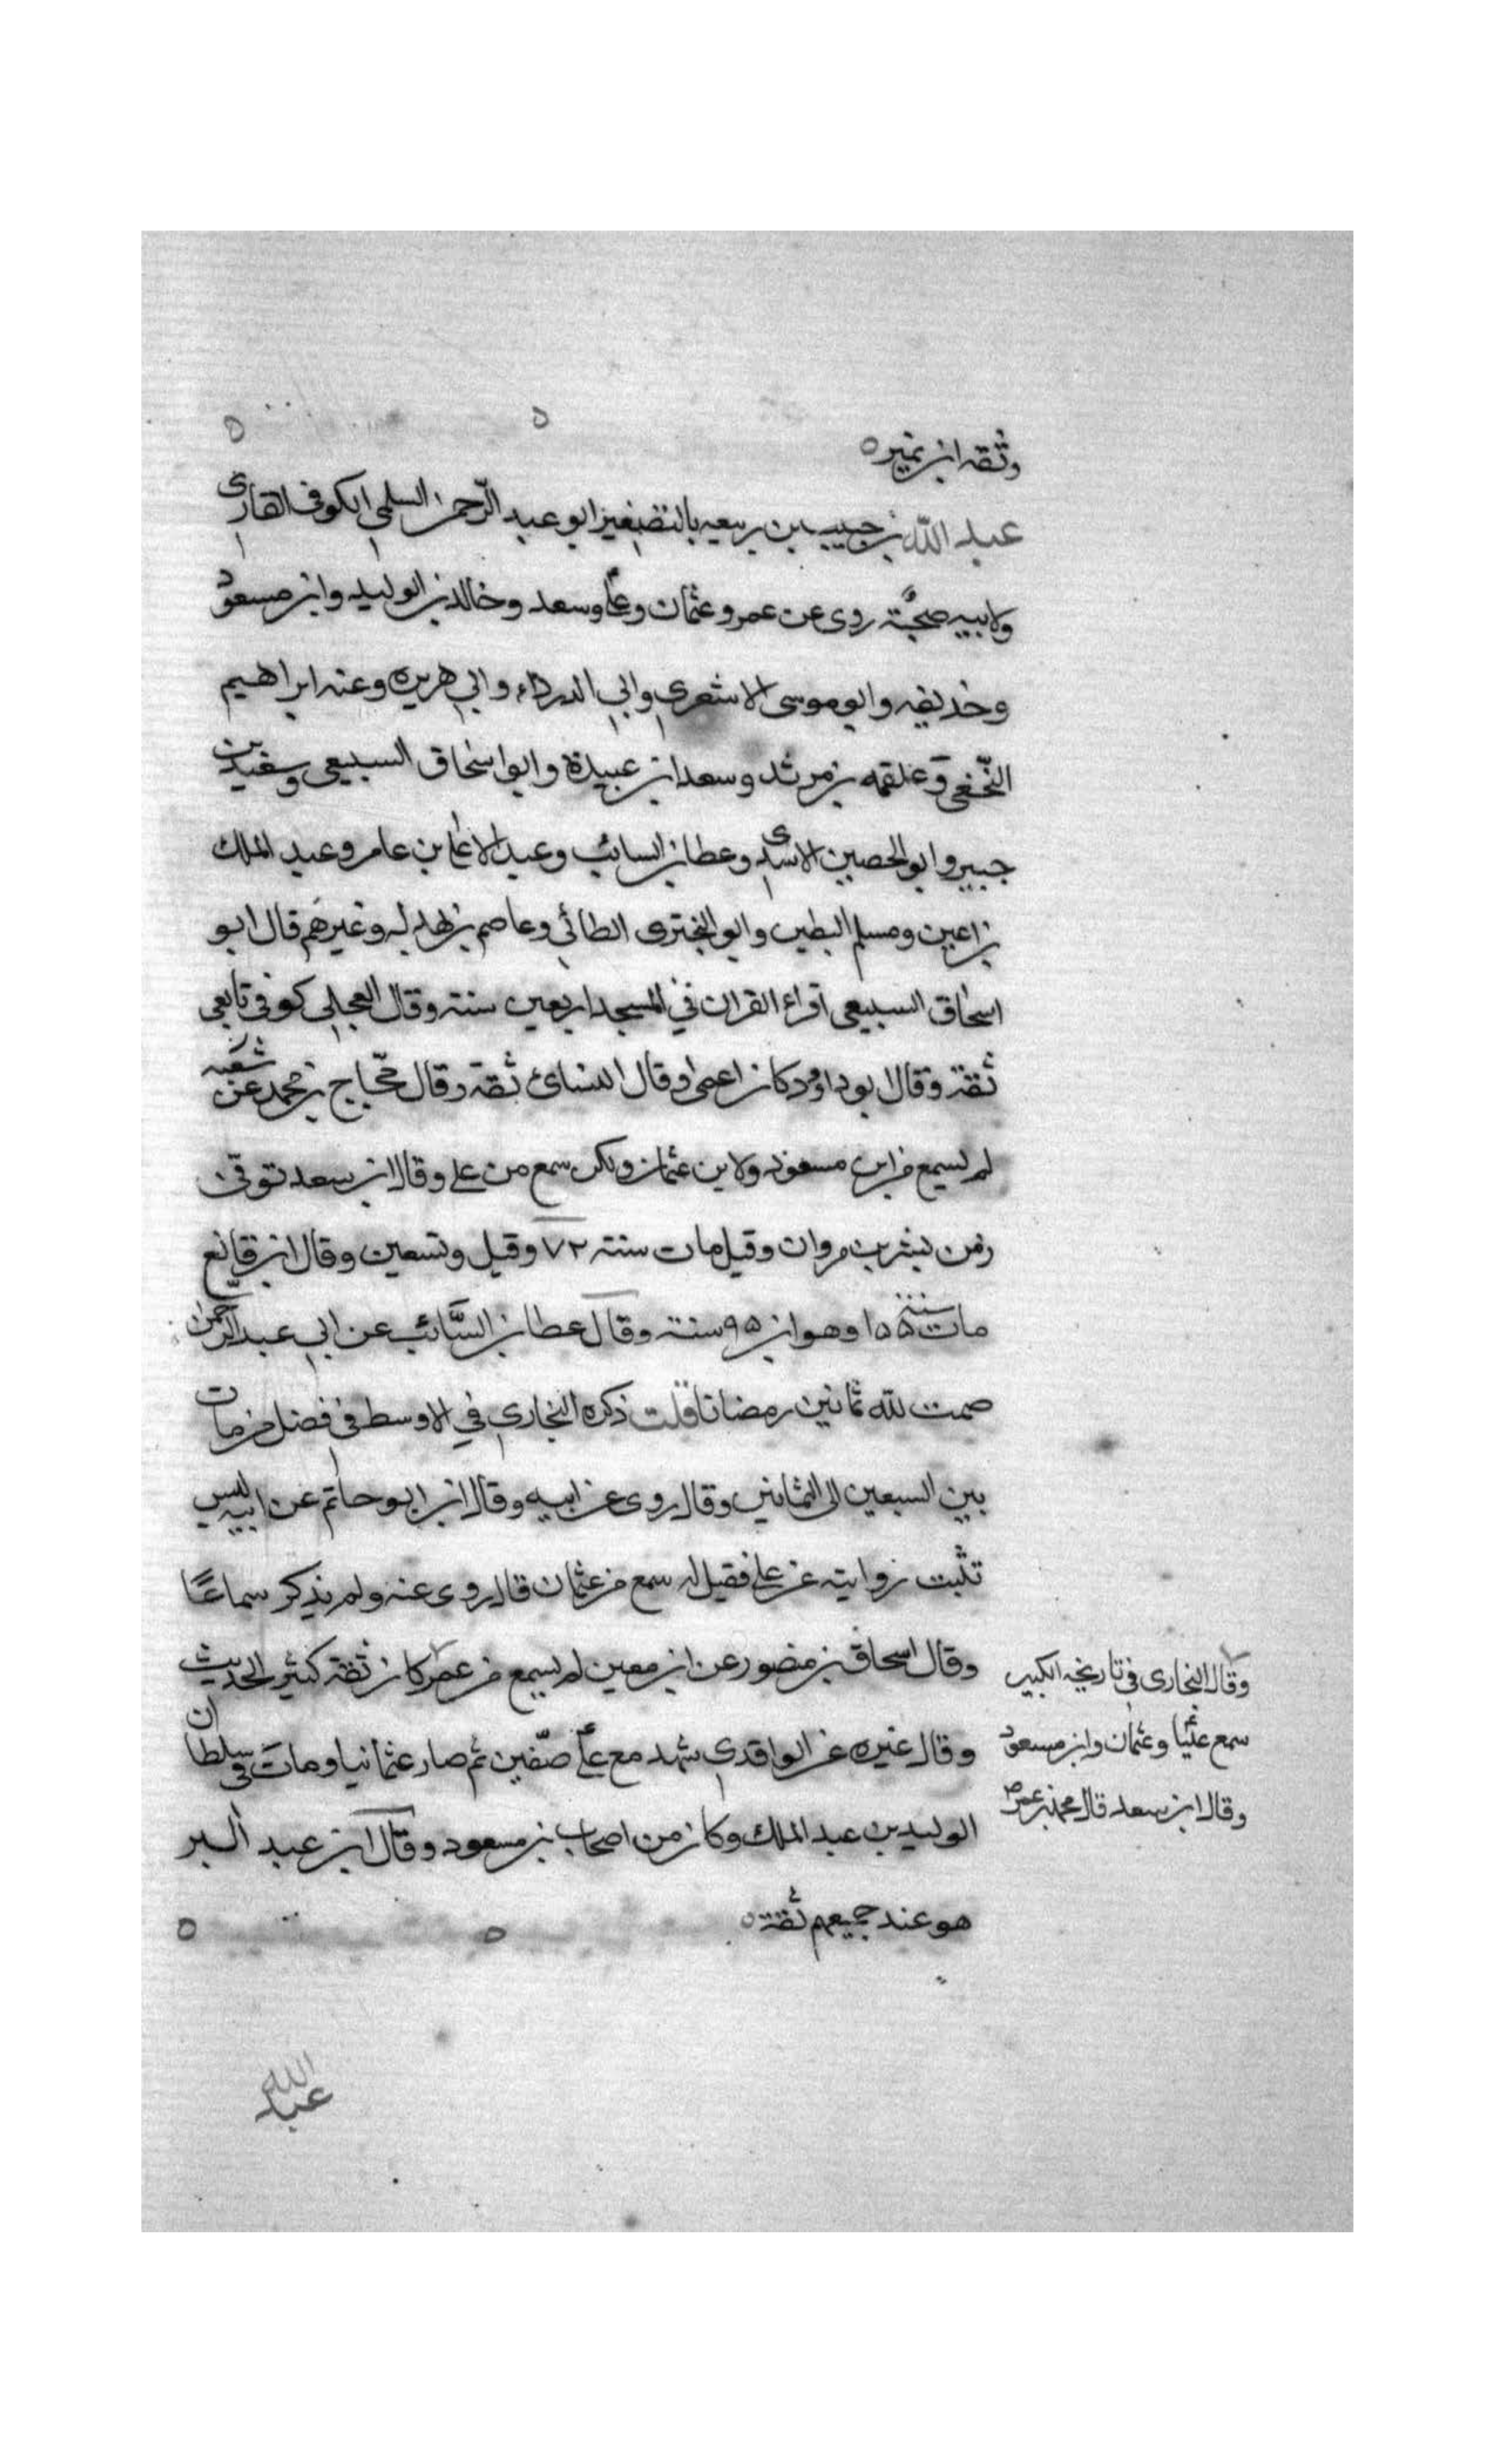 وثقه ابن نمير ه
عبد الله بن حبيب بن ربيعه بالتصغير ابو عبد الرّحمن السلمي الكوفي القاري
ولابيه صحبة روى عن عمر وعثمان وعلي وسعد وخالد بن الوليد وابن مسعود
وحذيفه وابو موسى الاشعري وابي الدرداء وابي هريره وعنه ابراهيم
النّخعي وعلقمه بن مرثد وسعد ابن عبيدة وابو اسحاق السبيعي وسعيد بن
جبير وابو الحصين الاسدى وعطا بن السائب وعبد الاعلى بن عامر وعبد الملك
بن اعين ومسلم البطين وابو البختري الطائي وعاصم بن بهدله وغيرهم قال ابو
اسحاق السبيعي اقراء القران في المسجد اربعين سنة وقال العجلي كوفي تابعي
ثقة وقال ابو داود كان اعمى وقال النسائ ثقة وقال حجّاج بن محمد عن شعبه
لم يسمع من ابن مسعود ولا من عثمان ولكن سمع من علي وقال ابن سعد توفى
زمن بشر بن مروان وقيل مات سنة ٧٢ وقيل وتسعين وقال ابن قانع
مات سنة ١٥٥ وهو ابن ٩٥ سنة وقال عطا بن السَّائب عن ابي عبد الرحمن
صمت لله ثمانين رمضانا قلت ذكره البخاري في الاوسط في فصل من مات
بين السبعين الى الثمانين وقال روى عن ابيه وقال ابن ابو حاتم عن ابيه ليس
تثبت روايته عن علي فقيل له سمع من عثمان قال روى عنه ولم يذكر سماعًا
وقال اسحاق بن منصور عن ابن معين لم يسمع من عمر كان ثقة كثير الحديث
وقال غيره عن الواقدي شهد مع علي صفّين ثم صار عثمانيا ومات في سلطان
الوليد بن عبد الملك وكان من اصحاب بن مسعود وقال ابن عبد البر
هو عند جميعهم ثقة ه
وقال البخاري في تاريخه الكبير
سمع عليًا وعثمان وابن مسعود
وقال ابن سعد قال محمد بن عمر
عبد الله